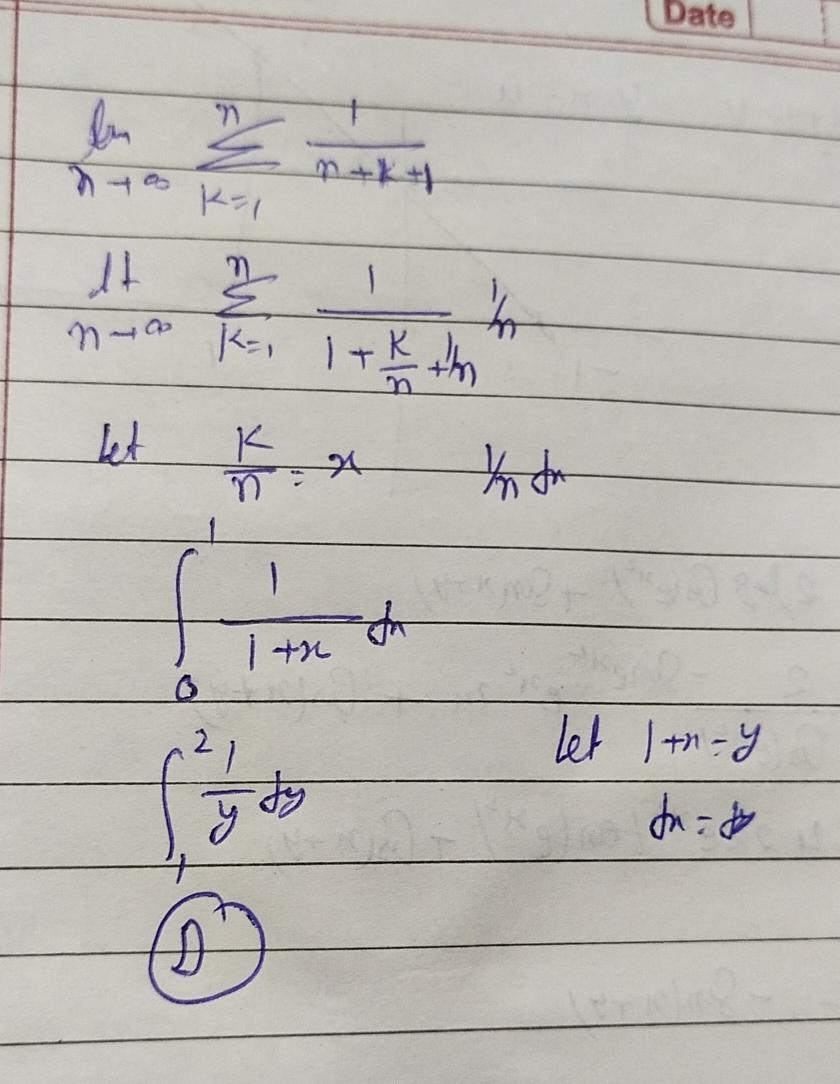 Date
lim n→∞ n Σ K=1 1/(n+K+1)
lt n→∞ n Σ K=1 1/(1+K/n+1/n) 1/n
Let K/n = x 1/n dn
∫ 0 1 1/(1+x) dn
∫ 1 2 1/y dy Let 1+x=y
dn = dy
D